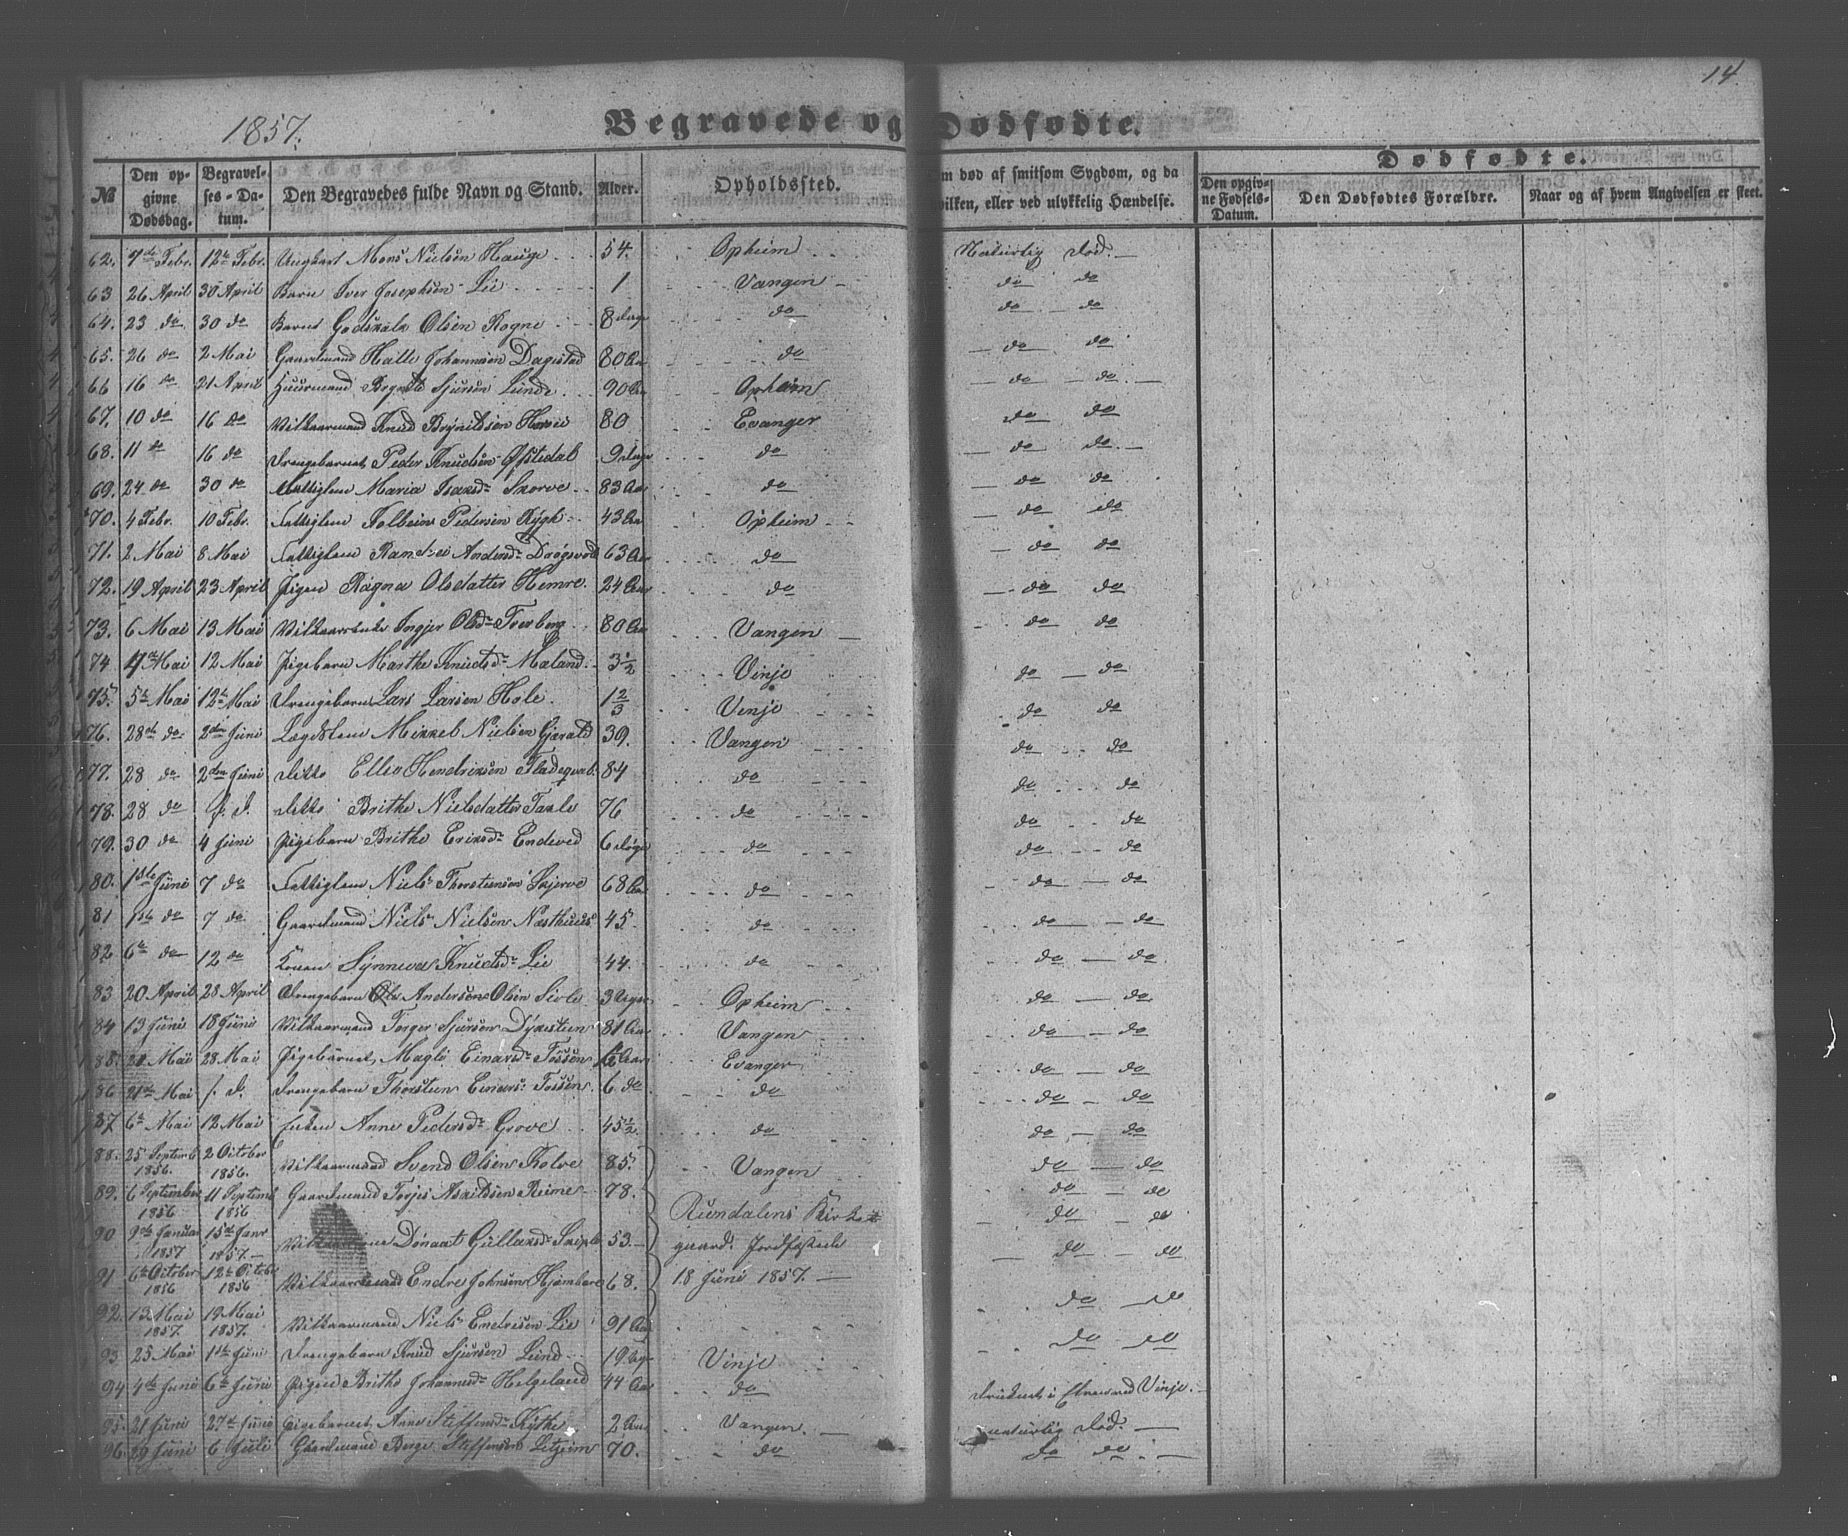 14
1857.
Begravede og Dødfødte.
№
Den opgivne Dødsdag.
Begravelses-Datum.
Den Begravedes fulde Navn og Stand.
Alder.
Opholdssted.
m død af smitsom Sygdom, og da
vilken, eller ved ulykkelig Hændelse.
Dødfødte.
Den opgivne Fødsels-Datum.
Den Dødfødtes Forældre.
Naar og af hvem Angivelsen er skeet.
62. 7de Febr. 12te Febr. Ungkarl Mons Nielsen Hauge 54. Opheim Naturlig Død.
63 26 April 30 April Barn Iver Josephsen Lie 1 Vangen do do
64. 23 do 30 do Barnet Godskalk Olsen Rogne 8 Dage do do do
65. 26 do 2 Mai Gaardmand Halle Johannesen Dagestad 80 Aar do do do
66 16 do 21 April Huusmand Brynild Sjursen Lunde 90 Aar Opheim do do
67. 10 do 16 do Vilkaarmand Knud Brynildsen 80 Evanger do do
68. 11 do 16 do Drengebarnet Peder Knudsen 9 Dage do do do
69. 24 do 30 do Fattiglem Maria Isaksdr Skorve 83 Aar do do do
70. 4 Febr. 10 Febr. Fattiglem Pedersen 43 Aar Opheim do do
71. 2 Mai 8 Mai Fattiglem Randvei Andersdr 63 Aar do do do
72. 19 April 23 April Pigen Ragna Olsdatter Hemre 24 Aar do do do
73. 6 Mai 13 Mai Vilkaarsenke Ingjer Olsdr Tverberg 80 Aar Vangen do do
74. 7de Mai 12 Mai Pigebarn Marthe Knudsdr Mæland 3½ Vinje do do
75. 5te Mai 12te Mai Drengebarn Lars Larsen Hole 1⅔ Vinje do do
76. 28de do 2den Juni Lægdslem Mikkel Nielsen 39. Vangen do do
77. 28 do 2den Juni Ditto Hendriksen 84 do do do
78. 28 do Ditto Brithe Nielsdatter 76 do do do
79. 30 do 4 Juni Pigebarn Brithe Eriksdr Endeved 6 Dage do do do
80. 1ste Juni 7 do Fattiglem Niels Thorsteinsen Skjerve 68 Aar do do do
81 1ste do 7 do Gaardmand Niels Nielsen Næsthuus 45 do do do
82 6te do 12 do Konen Synneva Knudsdr Lie 44. do do do
83 20 April 28 April Drengebarn Ole Andersen Olsen Sivle 3 Uger Opheim do do
84 13 Juni 18 Juni Vilkaarmand Torger Sjursen Dykesteen 81 Aar Vangen do do
85. 21 Mai 28 Mai Pigebarnet Einarsdr Fossen Aar Evanger do do
86 21de Mai Drengebarn Thorstein Einars. Fossen 6 do do do do
87 6te Mai 12 Mai Enken Anne Pedersdr Grove 45½ do do do
88. 25 Septemb 1856. 2 October 1856. Vilkaarmand Svend Olsen Kolve 85. Vangen do do
89. 6 September 1856 11 Septemb 1856 Gaardmand Torjes Askildsen Reime 78. do do
Rundalens Kirke
gaard. Jordfæstede
18 Juni 1857.
90 9de Januar 1857 15de Janr 1857. Gullaksdr 53. do do
91 6te October 1856 12te Octobr 1856 Vilkaarmand Endre Johnsen 68. do do
92. 13 Mai 1857. 19 Mai 1857. Vilkaarmand Niels Endresen Lie 91 Aar do do
93 25 Mai 1ste Juni Drengebarn Knud Sjursen Lund 19 Vinje do do
94 4de Juni 6te Juni Pigen Brithe Johannesdr Helgeland 44 Aar do Druknet i Elven ved Vinje.
95. 21 Juni 27de Juni Pigebarnet Anne Steffensdr Kythe 2 Aar Vangen. naturlig Død.
96. 29 Juni 6 Juli Gaardmand Berge Steffensen 70. do do do